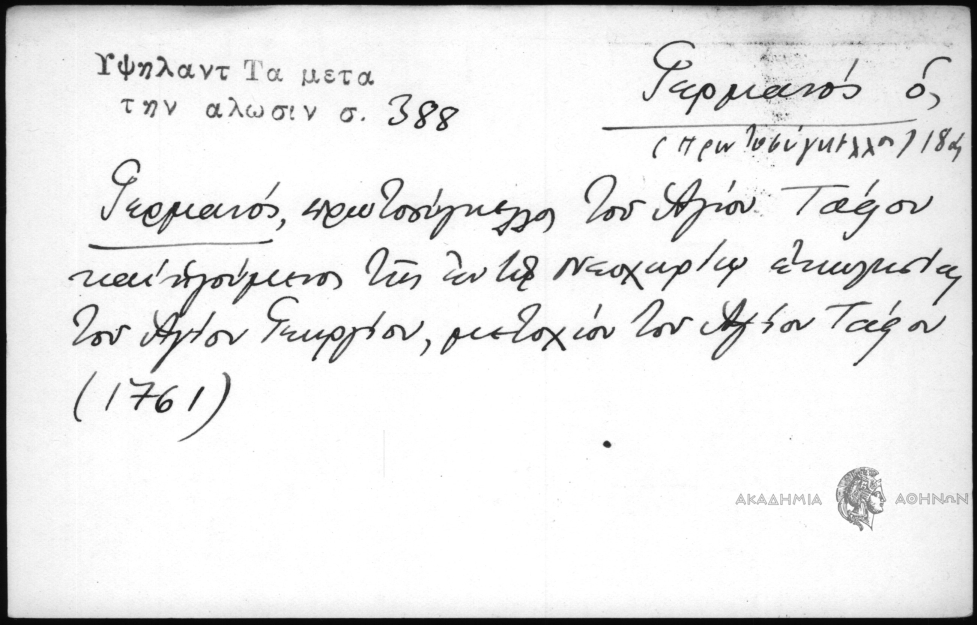 Υψηλαντ Τα μετα
την αλωσιν σ. 388
Γερμανός ὁ,
(πρωτοσύγκελλος) 18ος
Γερμανός, πρωτοσύγκελλος τοῦ Ἁγίου Τάφου
καί ἡγούμενος τῆς ἐν τῷ Νεοχωρίῳ ἐκκλησίας
τοῦ Ἁγίου Γεωργίου, μετοχίου τοῦ Ἁγίου Τάφου
(1761)
ΑΚΑΔΗΜΙΑ ΑΘΗΝΩΝ